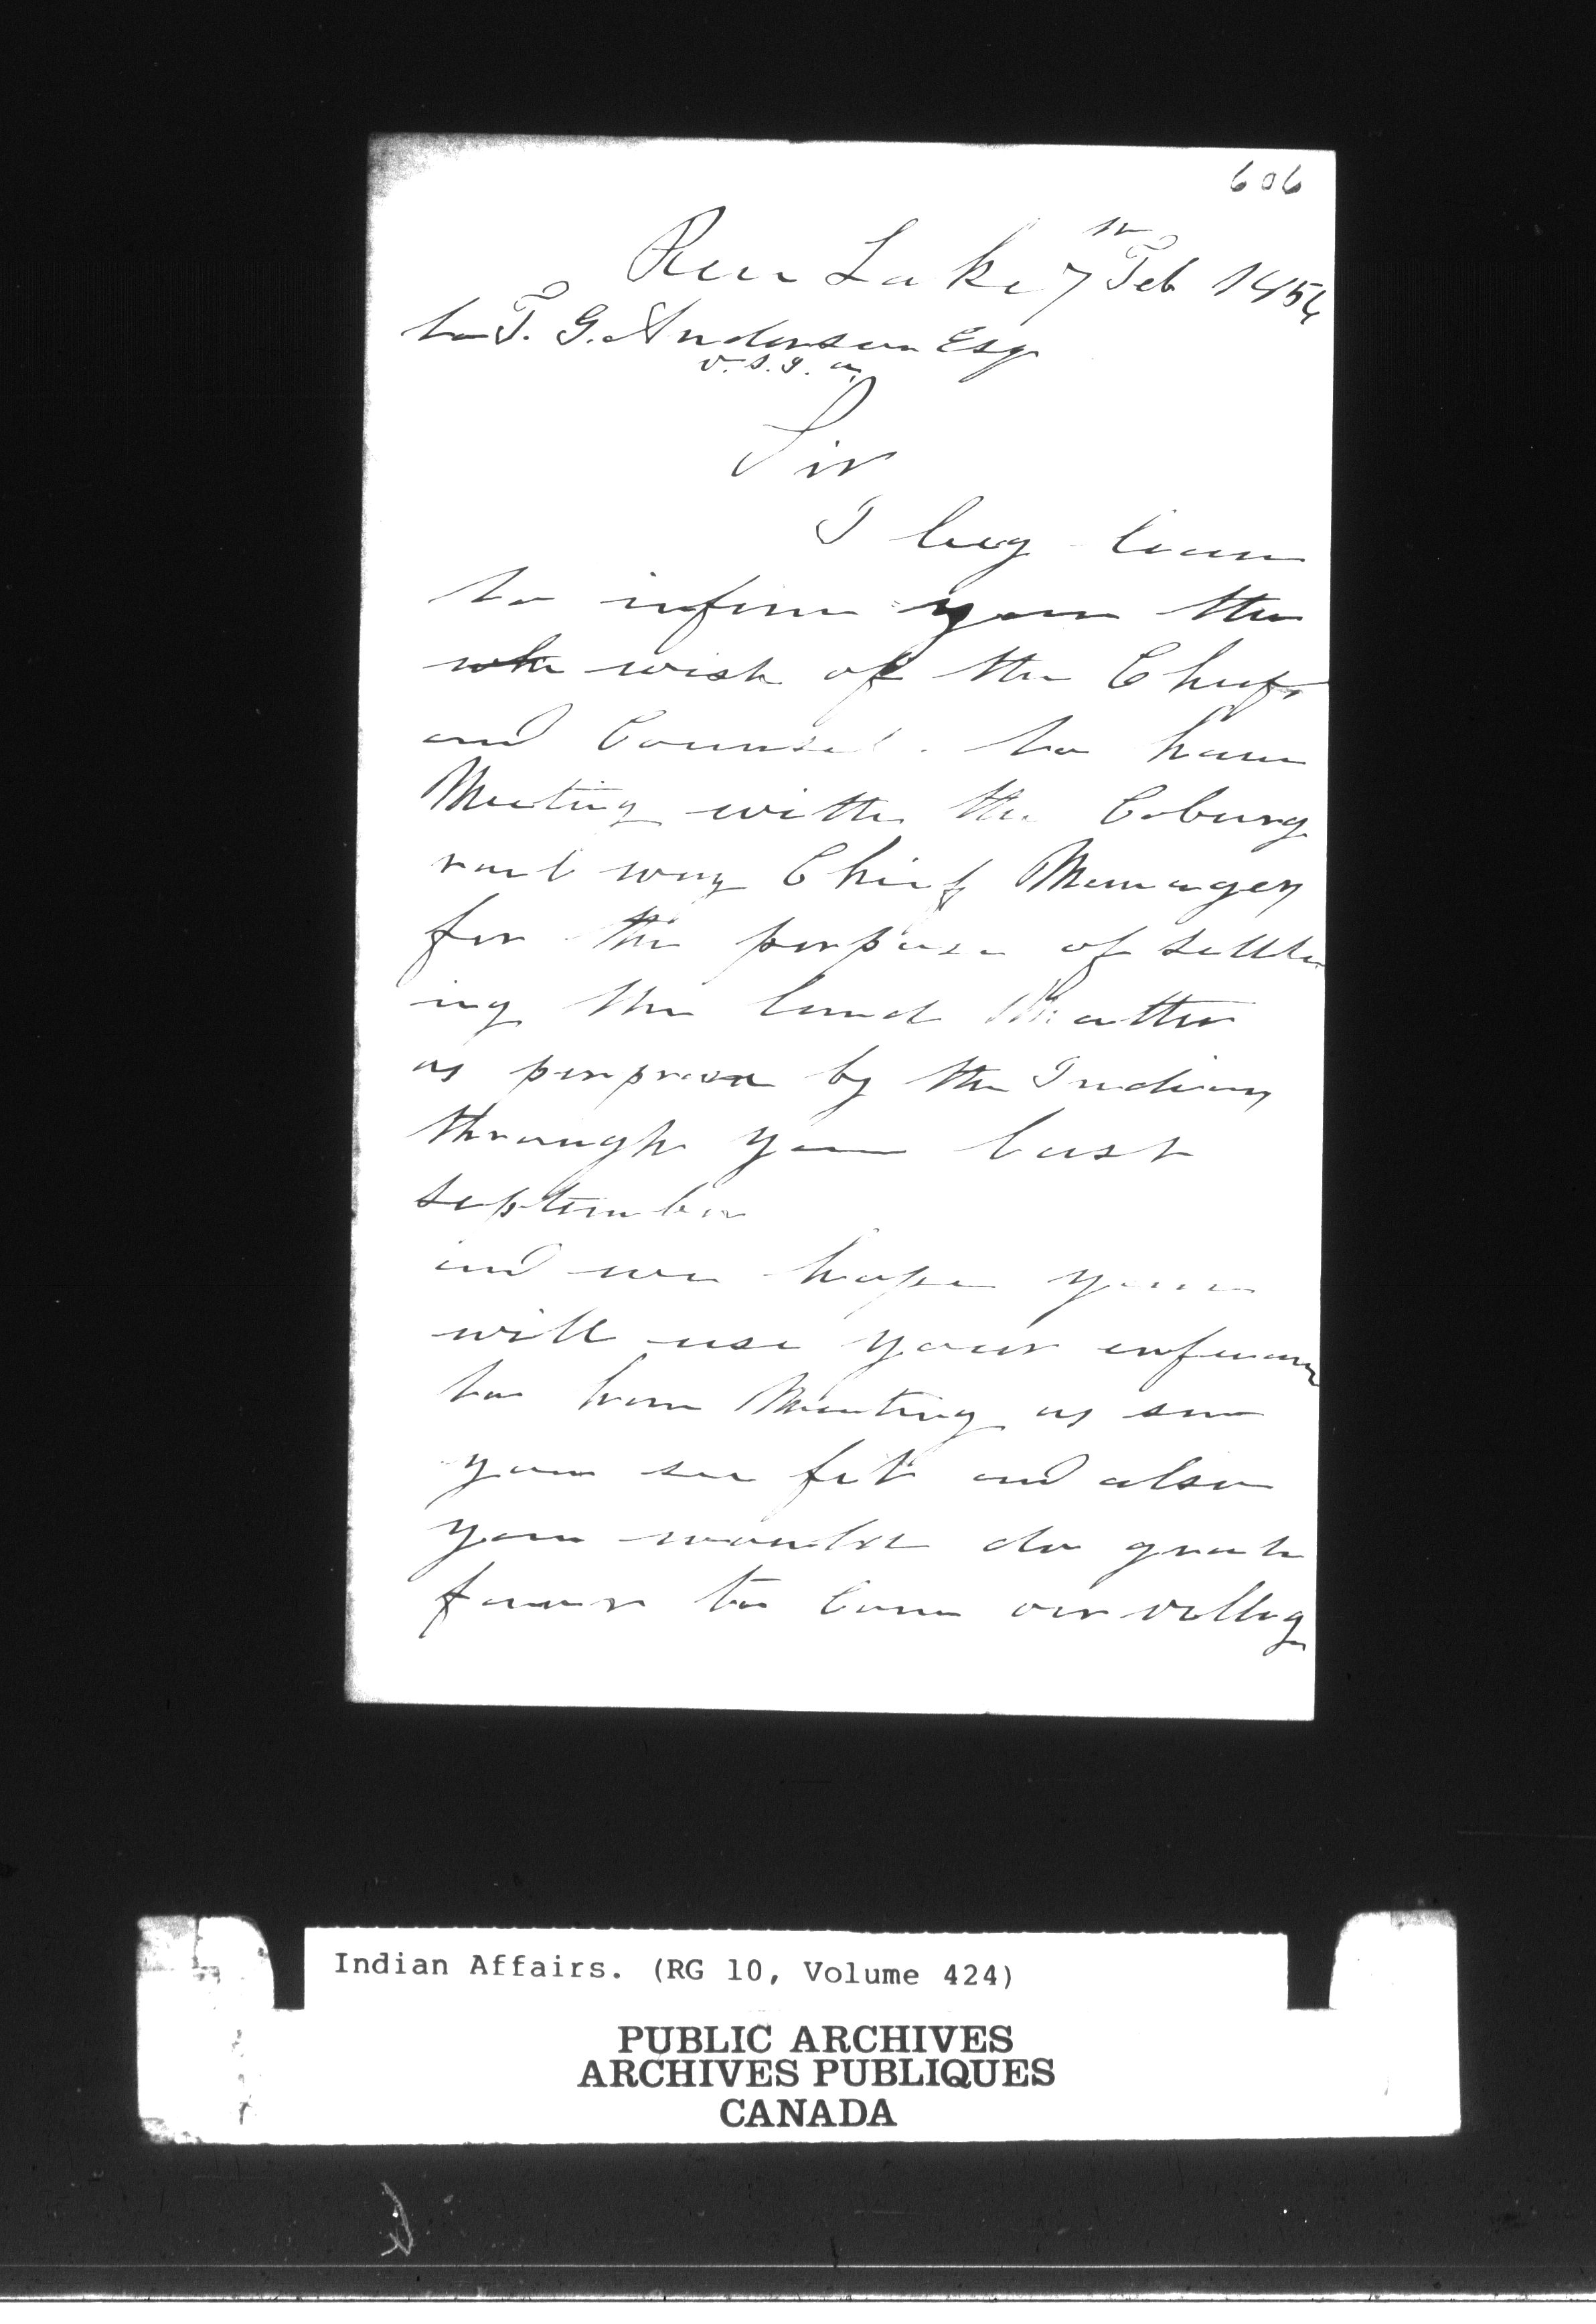 606
Rice Lake 7th Feb 1856
to T. G. Anderson Esq
V. S. I. a.
Sir
I beg leave
to inform you the
whe wish of the Chiefs
and Counsel. to have
Meeting with the Coburg
rail way Chief Manager
for the purpose of settle
ing the land Matter
as perpose by the Indians
through you last
september
and we hope you
will use your enfuence
to have Meeting as soo
you see fit and also
you would do great
favour to Come our villag
Indian Affairs. (RG 10, Volume 424)
PUBLIC ARCHIVES
ARCHIVES PUBLIQUES
CANADA